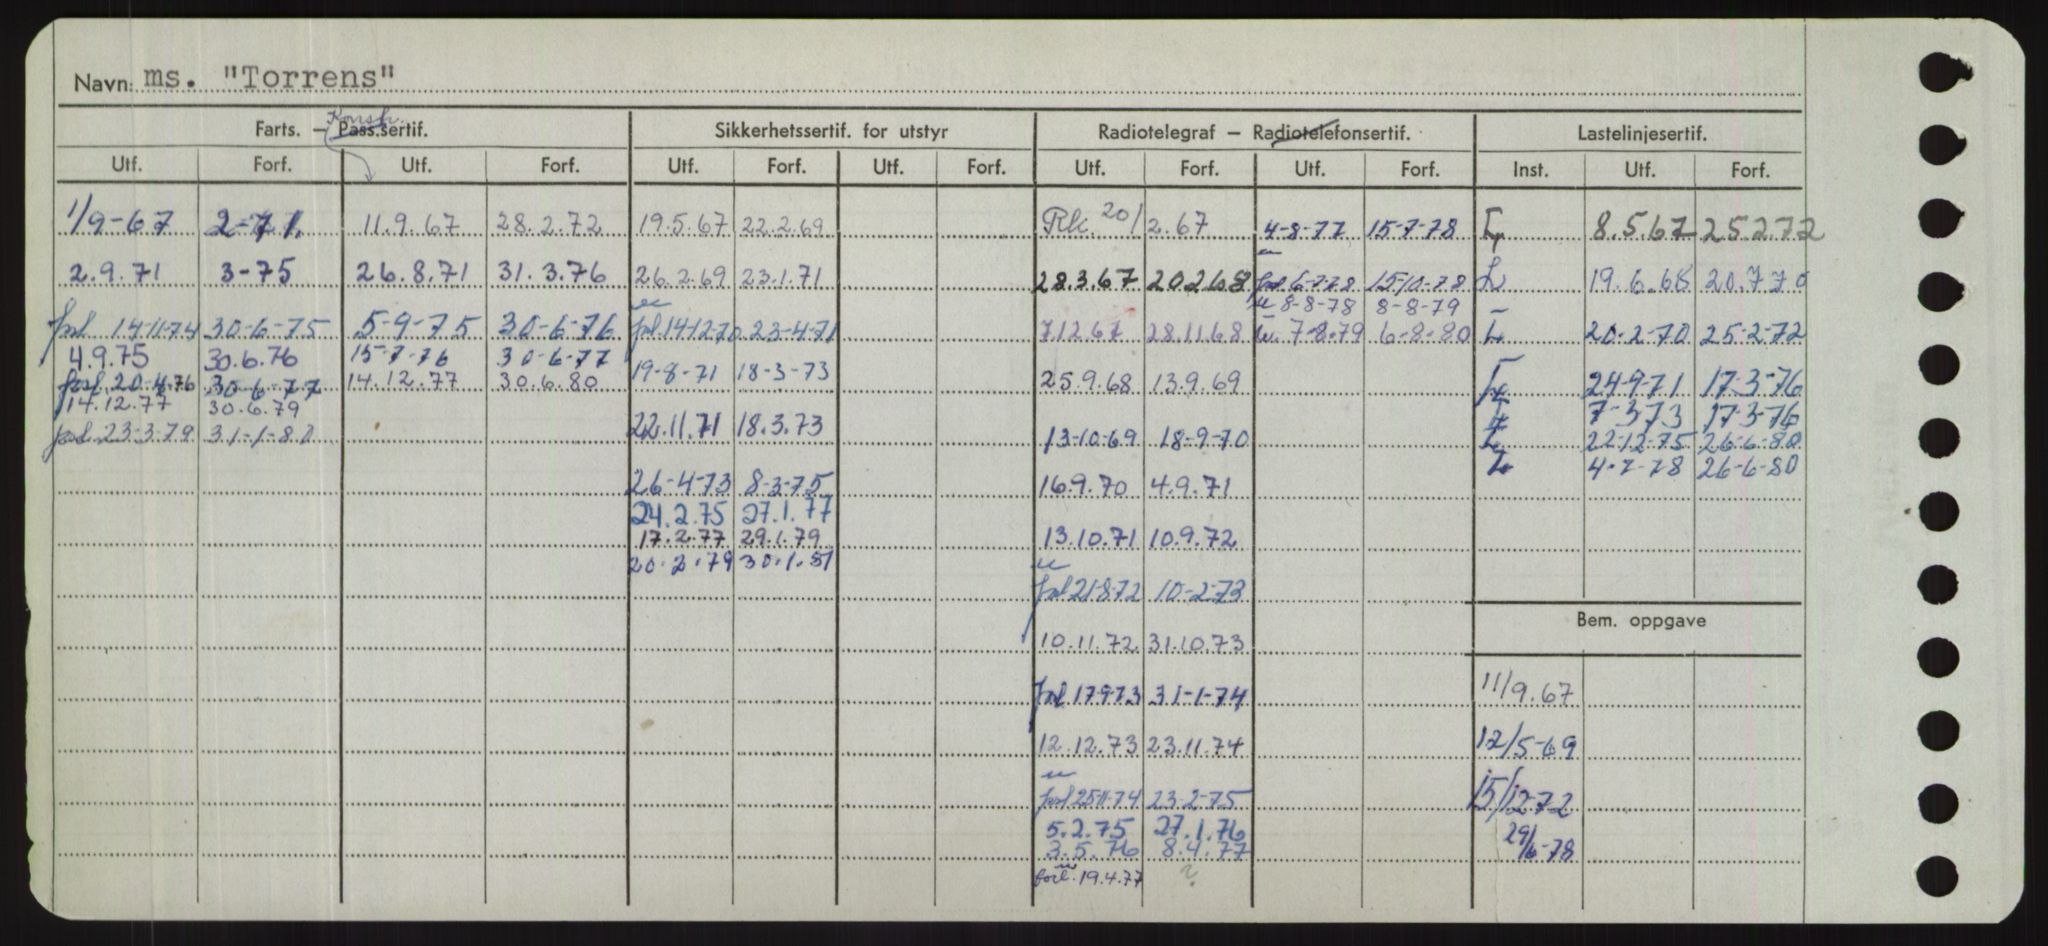 Navn: ms. "Torrens"
Konstr.
Farts. – Pass.sertif. Sikkerhetssertif. for utstyr Radiotelegraf – Radiotelefonsertif. Lastelinjesertif.
Utf. Forf. Utf. Forf. Utf. Forf. Utf. Forf. Utf. Forf. Utf. Forf. Inst. Utf. Forf.
1/9-67 2-71. 11.9.67 28.2.72 19.5.67 22.2.69 Rk. 20/2.67 4-8-77 15-7-78 8.5.67 25.2.72
2.9.71 3-75 26.8.71 31.3.76 26.2.69 23.1.71 28.3.67 20.2.68 15/10-78 L 19.6.68 20.7.70
8-8-78 8-8-79
forl. 14-11-74 30-6-75 5-9-75 30-6-76 forl 14-12-70 23-4-71 7.12.67 28.11.68 7-8.79 6-8-80 L 20-2-70 25-2-72
4.9.75 30.6.76 15-7-76 30-6-77 19-8-71 18-3-73
forl. 20-4-76 30-6-77 14.12.77 30.6.80 25.9.68 13.9.69 24-9-71 17-3-76
14.12.77 30.6.79 7-3-73 17-3-76
forl. 23-3-79 31-1-80 22.11.71 18.3.73 13-10-69 18-9-70 L 22-12-75 26-6-80
L 4-7-78 26-6-80
26-4-73 8-3-75 16.9.70 4.9.71
24.2.75 27.1.77
17.2.77 29.1.79 13.10.71 10.9.72
20.2.79 30.1.81
forl 21-8-72 10-2-73
Bem. oppgave
10.11.72 31.10.73
forl 17-9-73 31-1-74 11/9.67
12.12.73 23.11.74 12/5-69
forl 25-11-74 23-2-75 15/12-72
5.2.75 27.1.76
3.5.76 8.4.77 29/6-78
forl. 19.4.77 ?